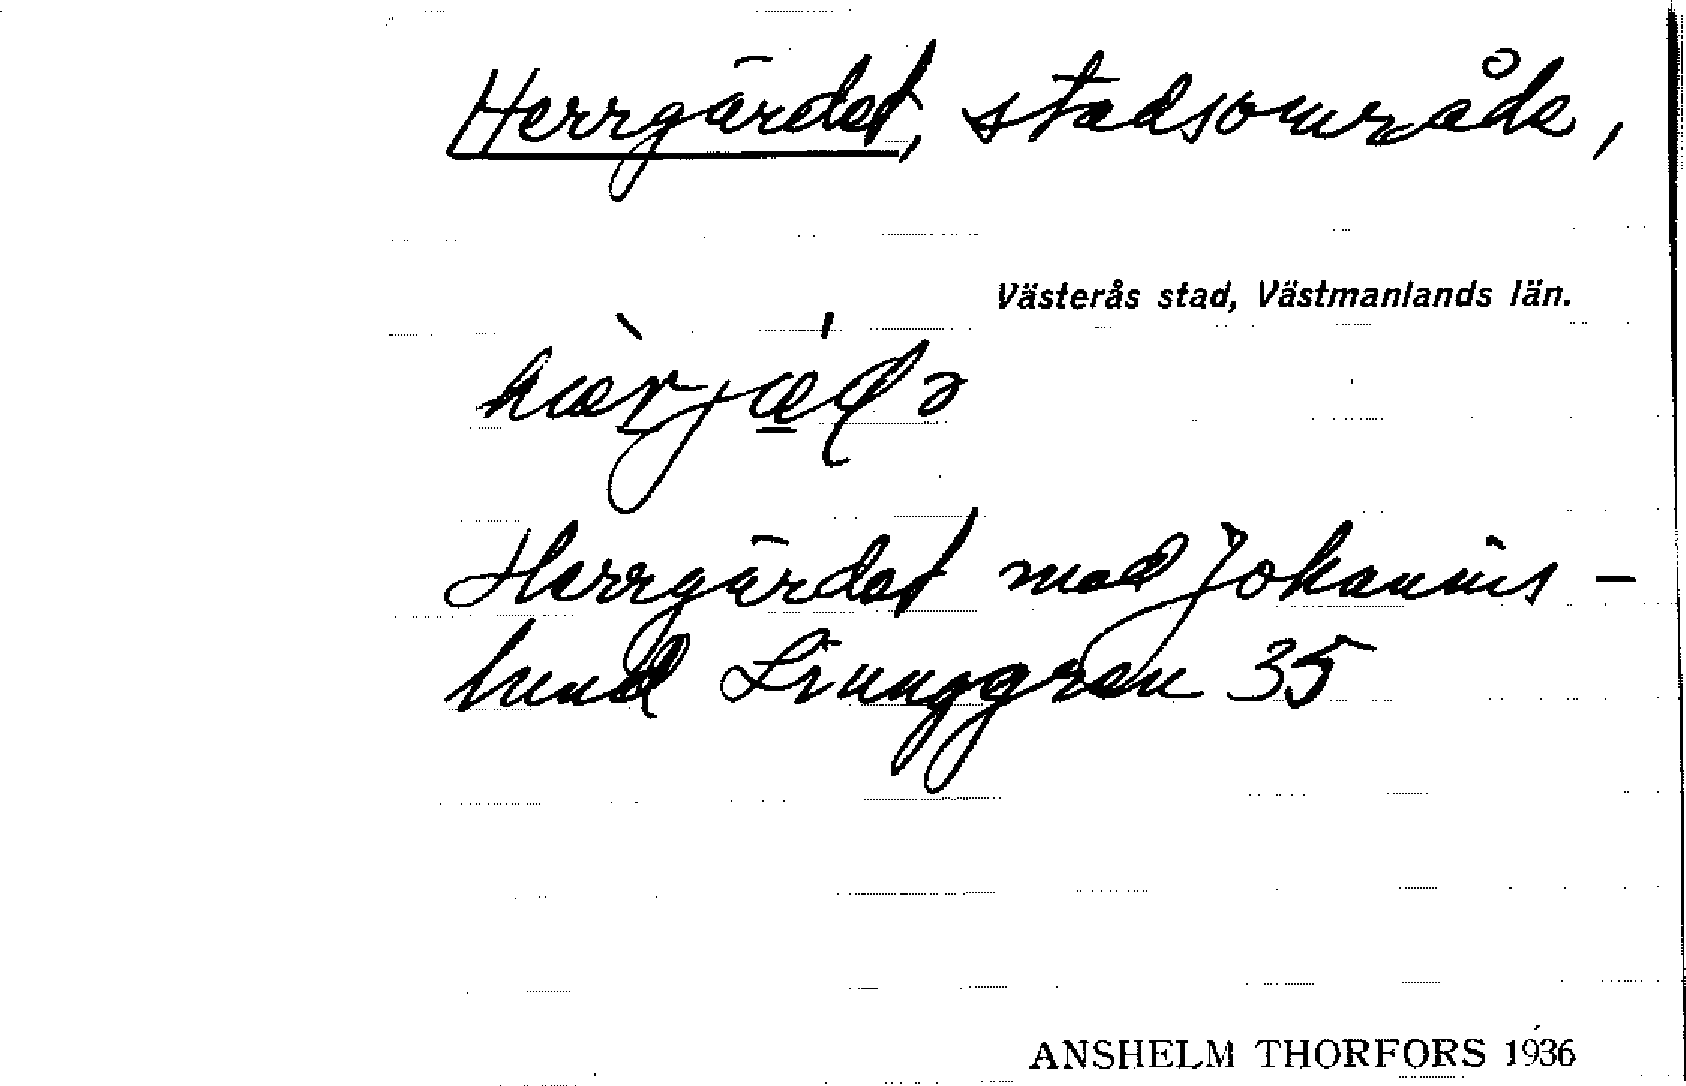 Herrgärdet, stadsområde,
Västerås stad, Västmanlands län.
Herrgärdet med Johannis-
lund Ljunggren 35
ANSHELM THORFORS 1936